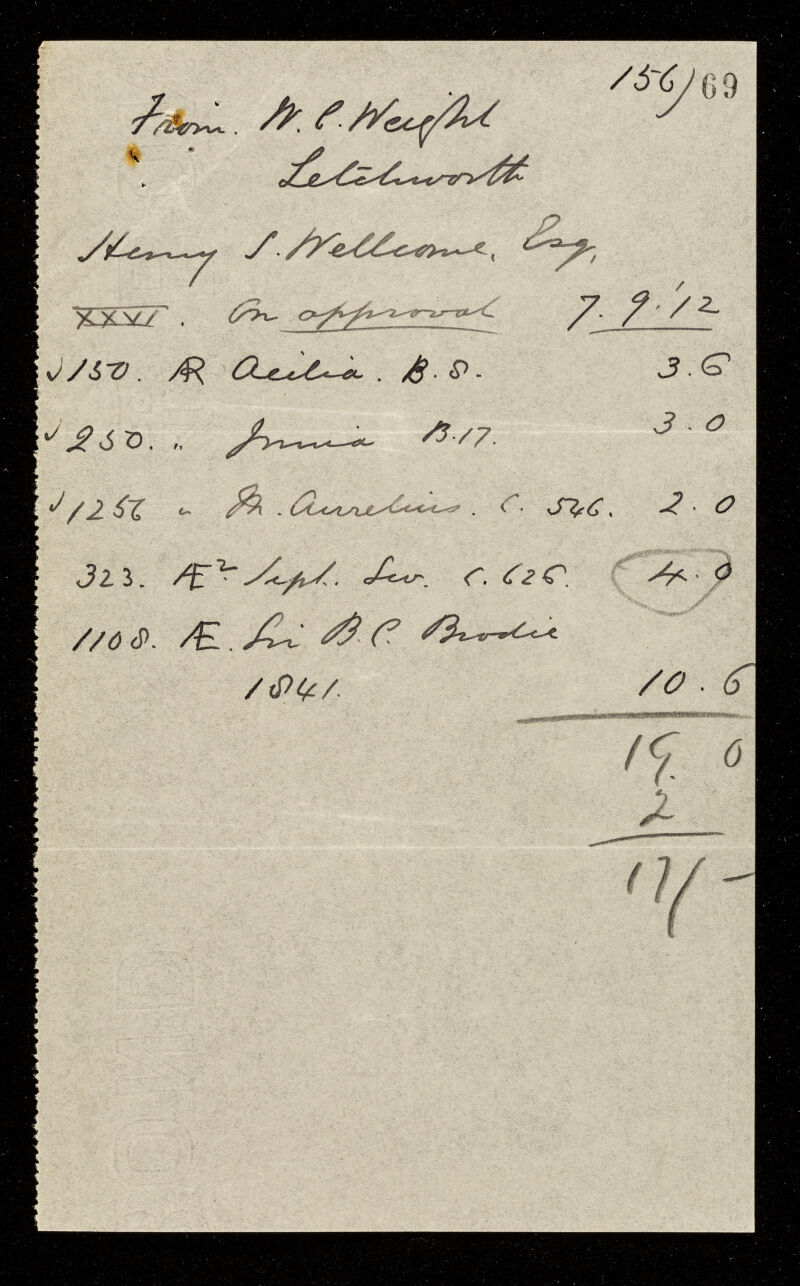 156) 69
From. W. C. Weight
Letchworth
Henry S. Wellcome, Esq,
XXVI. On approval 7. 9. '12
✓ 150. AR Acilia. B. 8. 3.6
✓ 250. " Junia B. 17. 3.0
✓ 1256 " M. Aurelius. C. 546. 2.0
323. Æ2. Sept. Sev. C. 626. 4.0
1108. Æ. Sir B. C. Brodie
1841. 10.6
19. 0
2
17/-